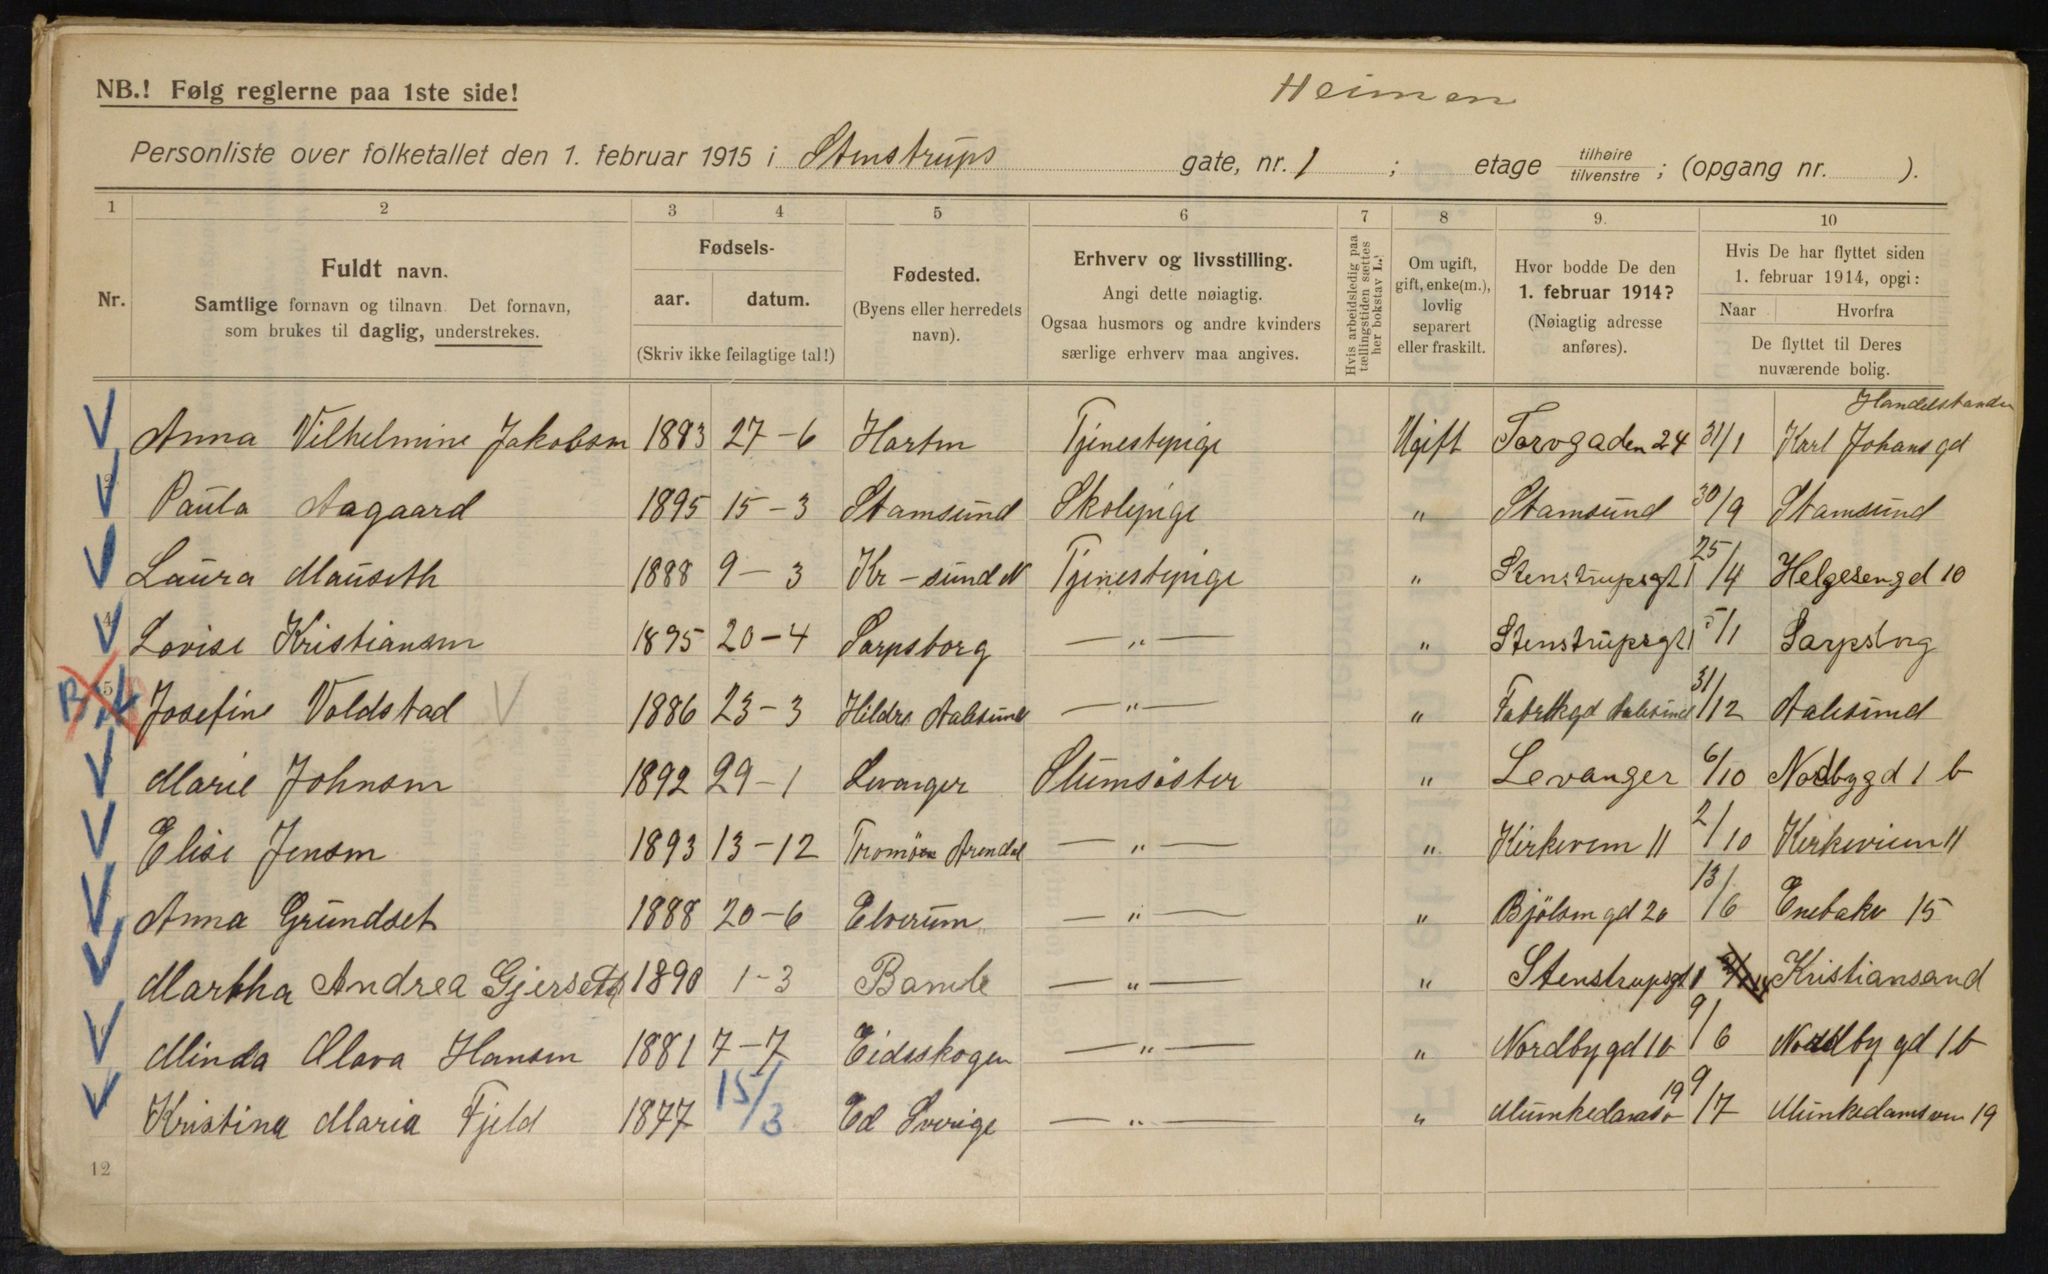 NB.! Følg reglerne paa 1ste side!
Heimen
Personliste over folketallet den 1. februar 1915 i Stenstrups gate, nr. 1 ; etage tilhøire tilvenstre ; (opgang nr. ).
1 2 3 4 5 6 7 8 9. 10
Nr.
Fuldt navn.
Samtlige fornavn og tilnavn. Det fornavn,
som brukes til daglig, understrekes.
Fødsels-
aar. datum.
(Skriv ikke feilagtige tal!)
Fødested.
(Byens eller herredets
navn).
Erhverv og livsstilling.
Angi dette nøiagtig.
Ogsaa husmors og andre kvinders
særlige erhverv maa angives.
Hvis arbeidsledig paa
tællingstiden sættes
her bokstav L.
Om ugift,
gift, enke(m.),
lovlig
separert
eller fraskilt.
Hvor bodde De den
1. februar 1914?
(Nøiagtig adresse
anføres).
Hvis De har flyttet siden
1. februar 1914, opgi:
Naar Hvorfra
De flyttet til Deres
nuværende bolig.
Anna Vilhelmine Jakobsen 1883 27-6 Tjenestepige Ugift Torvgaden 24 31/1 Karl Johans gd
Paula Aagaard 1895 15-3 Stamsund Skolepige " Stamsund 30/9 Stamsund
Laura Mauseth 1888 9-3 Kr-sund N Tjenestepige " Stenstrupsgt 1 25/4 Helgesengd 10
4 Lovise Kristiansen 1895 20-4 Sarpsborg — " — " Stenstrupsgt 1 5/1 Sarpsborg
5 Josefine Voldstad 1886 23-3 Hildre Aalesund — " — " Fabrikgd Aalesund 31/12 Aalesund
Marie Johnsen 1892 29-1 Levanger Slumsøster " Levanger 6/10 Nordbygd 1 b
Elise Jensen 1893 13-12 Tromøen Arendal — " — " Kirkevem 11 2/10 Kirkeveien 11
Anna Grundset 1888 20-6 Elverum — " — " Bjølsengd 20 13/6 Enebakv 15
Martha Andrea 1890 1-3 Bamle — " — " Stenstrupsgt 1 Kristiansand
Minda Olava Hansen 1881 7-7 Eidsskogen — " — " Nordbygd 1b 9/6 Nordbygd 1b
Kristina Maria Fjeld 1877 15/3 Ed Sverige — " — " Munkedamsv 19 9/7 Munkedamsven 19
12